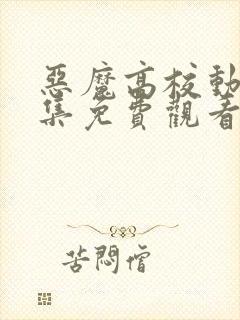 惡魔高校動
集免費觀看
苦悶僧